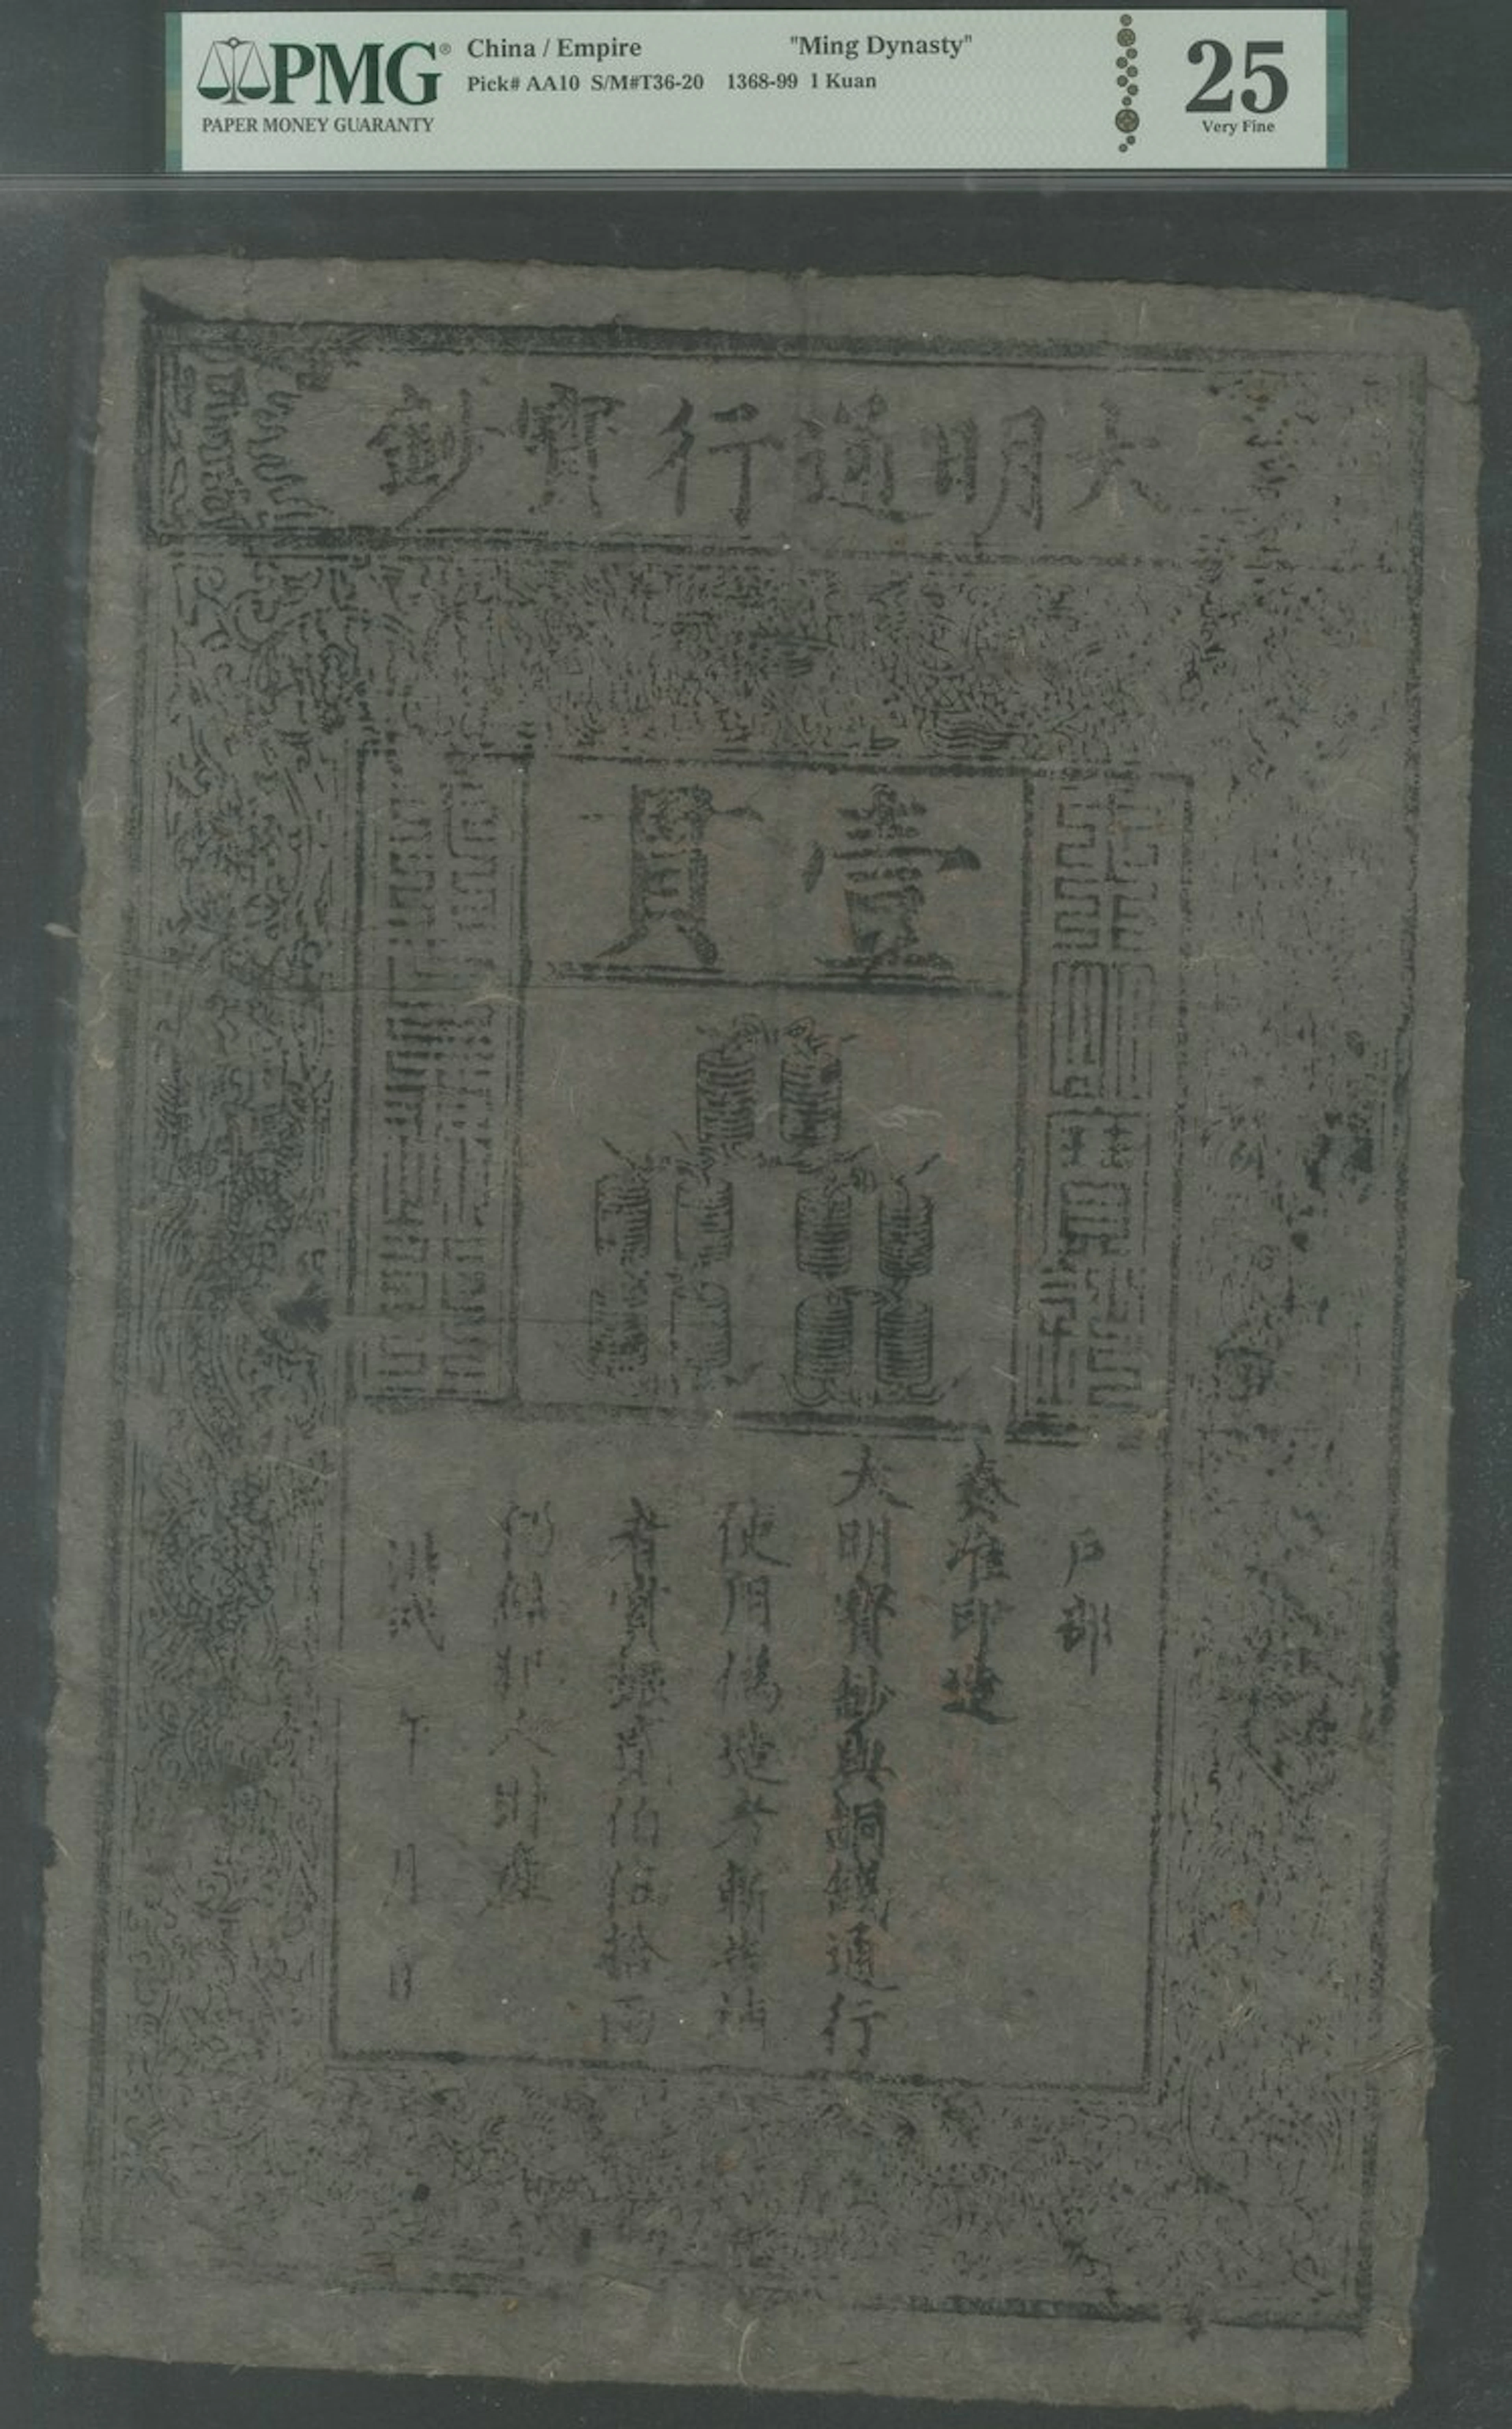 PMG®
PAPER MONEY GUARANTY
China / Empire "Ming Dynasty"
Pick# AA10 S/M#T36-20 1368-99 1 Kuan
25
Very Fine
大明通行寶鈔
壹貫
大明寶鈔
天下通行
戶部
奏准印造
大明寶鈔與銅錢通行
使用偽造者斬告捕
者賞銀貳伯伍拾兩
仍給犯人財產
洪武 年 月 日